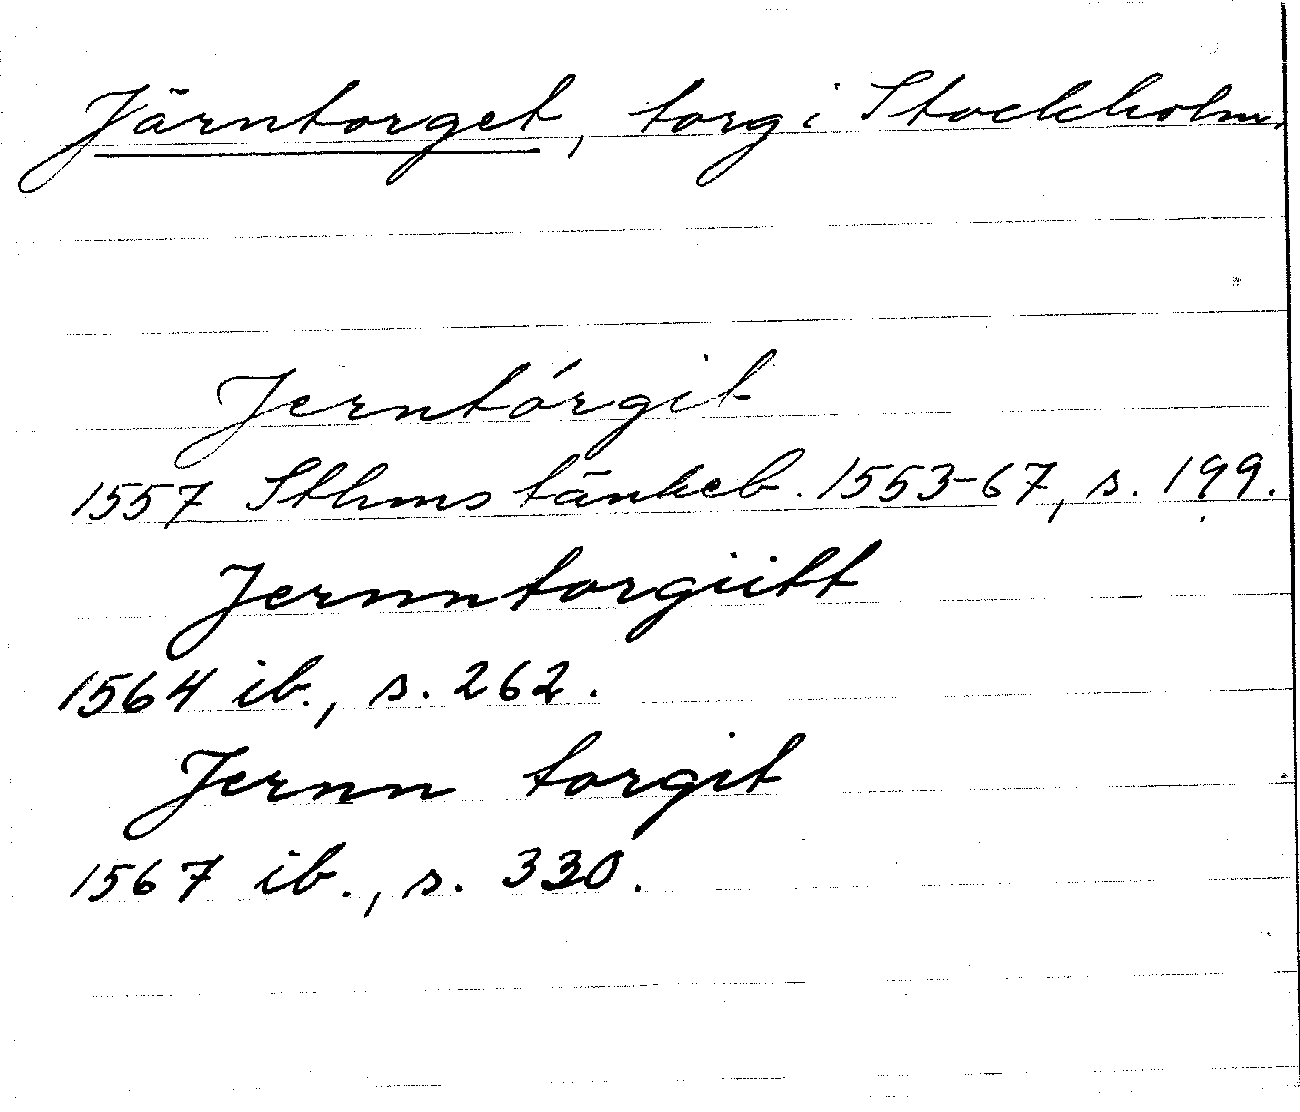 Järntorget, torg i Stockholm.
Jerntórgit
1557 Sthms tänkeb. 1553-67, s. 199.
Jernntorgiitt
1564 ib., s. 262.
Jernn torgit
1567 ib., s. 330.